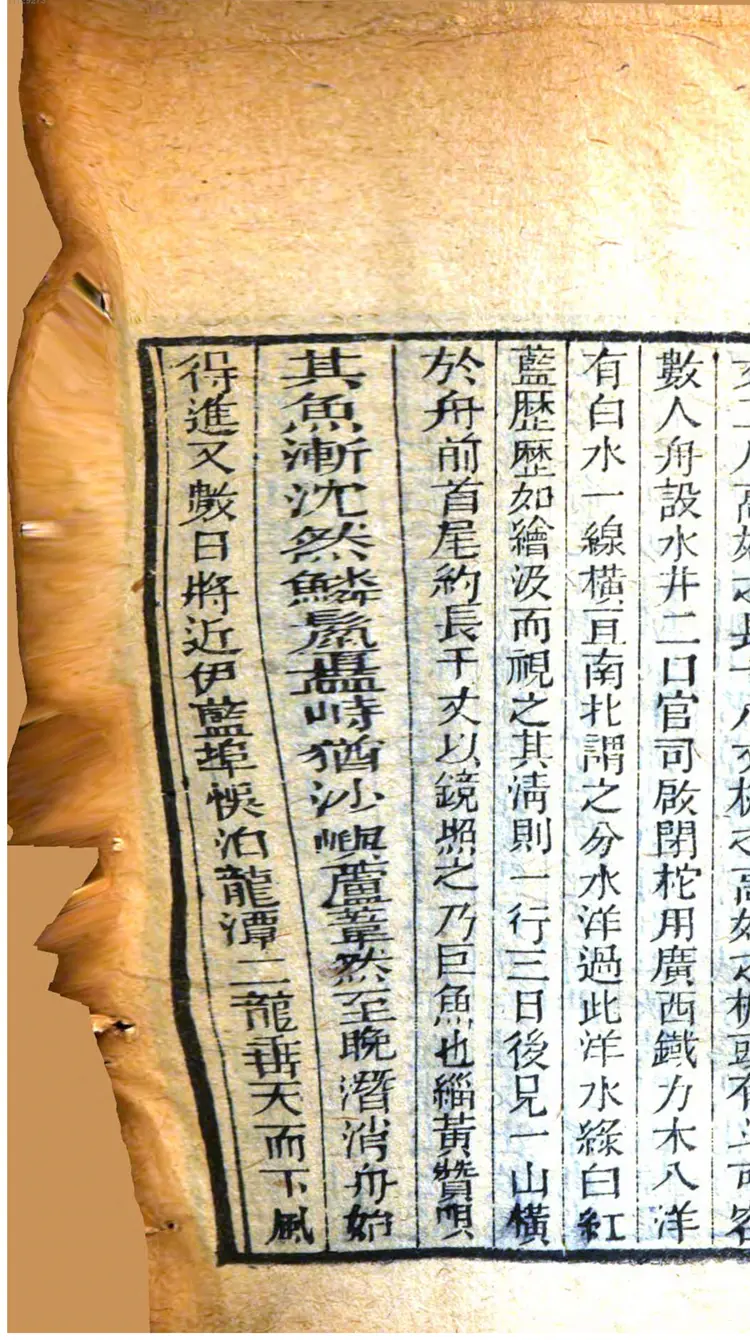 數人舟設水井二口官司啟閉柁用廣西鐵力木入洋
有白水一線橫亘南北謂之分水洋過此洋水綠白紅
藍歷歷如繪汲而視之其清則一行三日後見一山橫
於舟前首尾約長千丈以鏡照之乃巨魚也緇黃贊唄
其魚漸沈然鱗鬣矗峙猶沙嶼蘆葦然至晚潛消舟始
得進又數日將近伊藍埠悞泊龍潭二龍垂天而下風